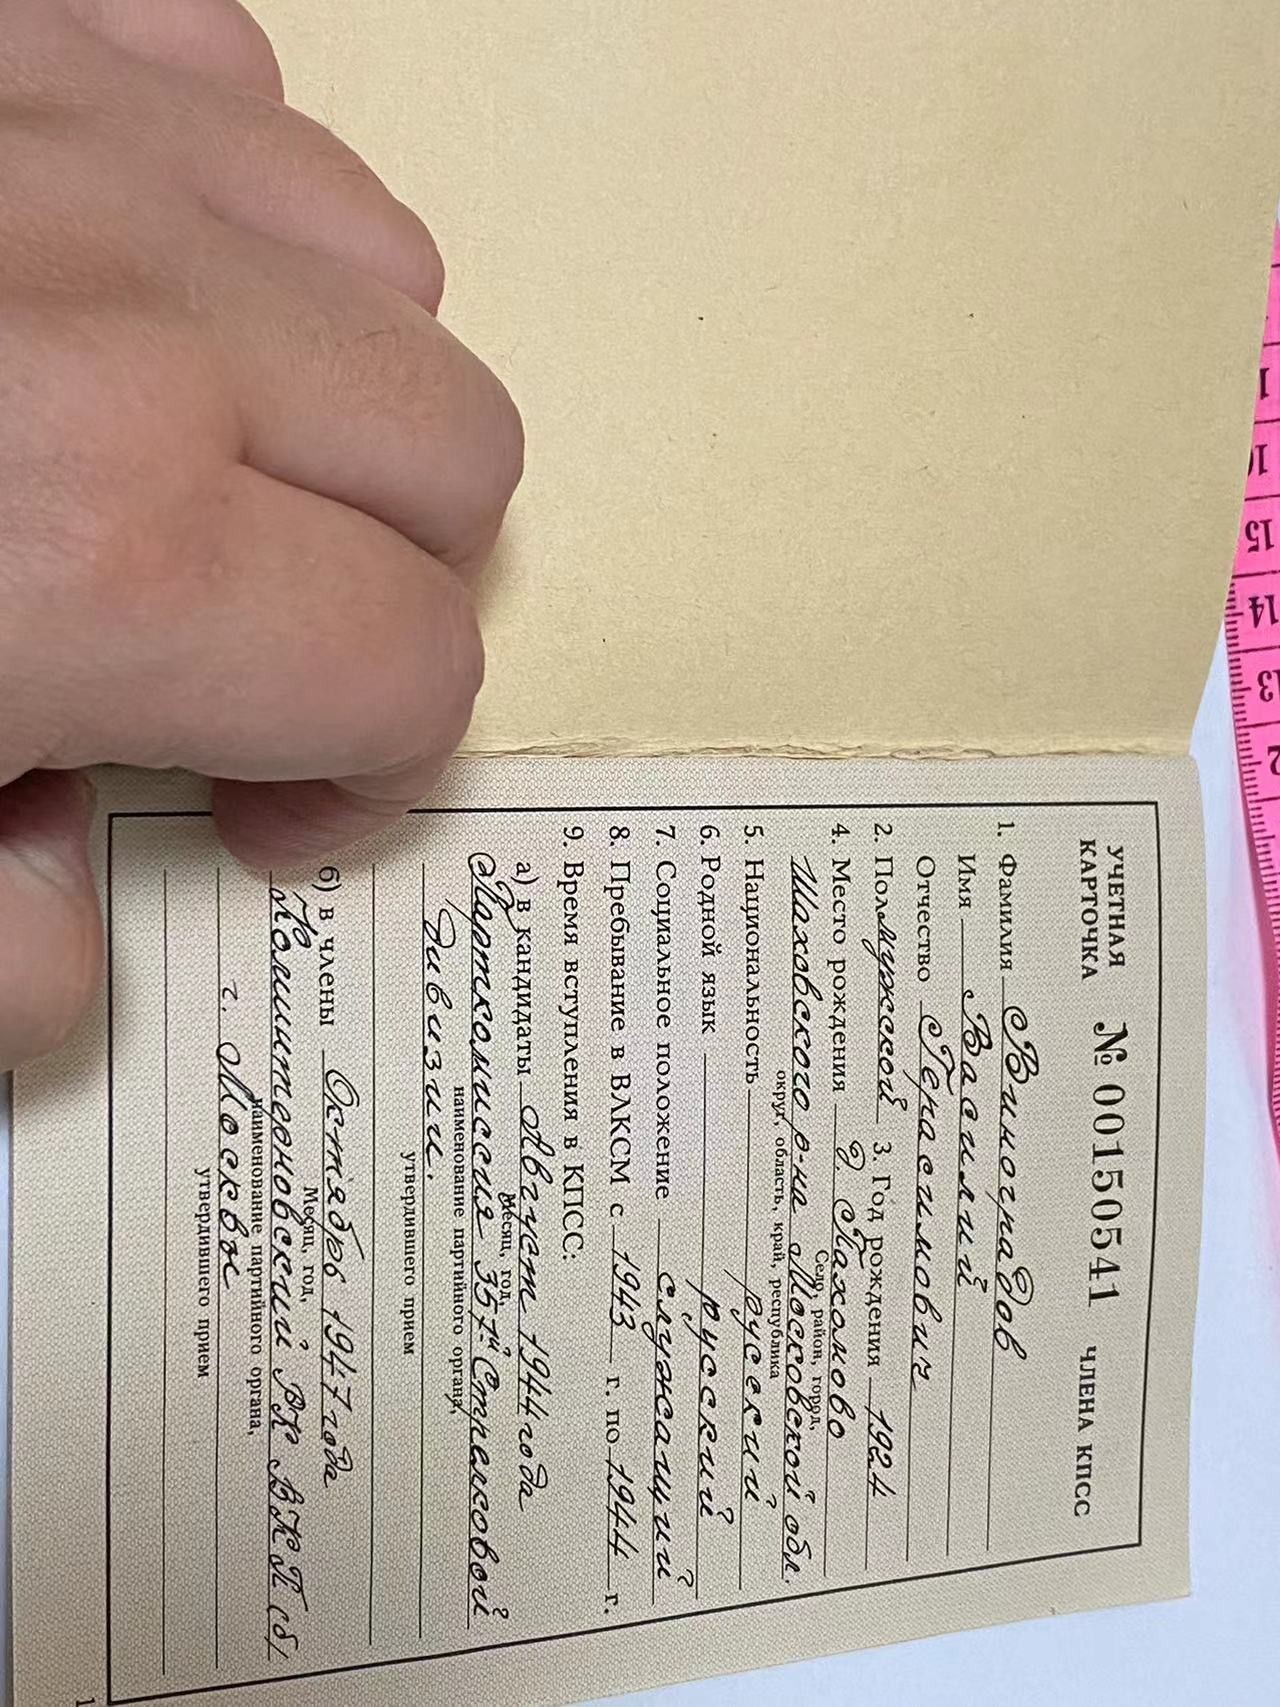 УЧЕТНАЯ КАРТОЧКА № 00150541 ЧЛЕНА КПСС
1. Фамилия Виноградов
Имя Василий
Отчество Герасимович
2. Пол мужской 3. Год рождения 1924
4. Место рождения д. Пахомово
Село, район, город,
Шаховского р-на Московской обл.
округ, область, край, республика
5. Национальность русский
6. Родной язык русский
7. Социальное положение служащий
8. Пребывание в ВЛКСМ с 1943 г. по 1944 г.
9. Время вступления в КПСС:
а) в кандидаты Август 1944 года
Месяц, год,
Парткомиссия 357й Стрелковой
наименование партийного органа,
дивизии.
утвердившего прием
б) в члены Октябрь 1947 года
Месяц, год,
Коминтерновский РК ВКП(б)
наименование партийного органа,
г. Москвы
утвердившего прием
1
1
16
15
14
13